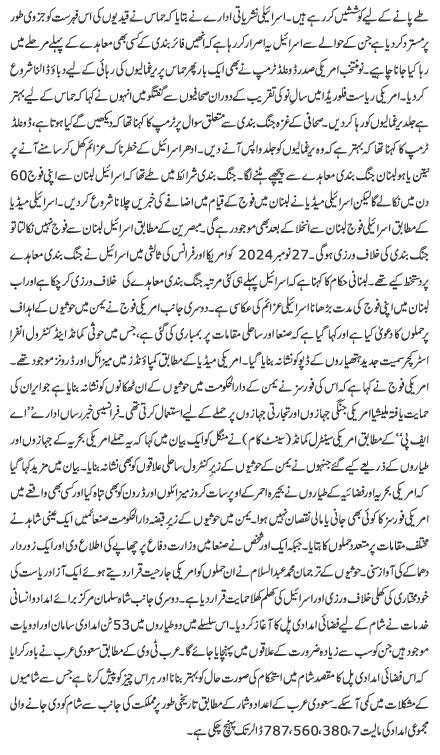 طے پانے کے لیے کوششیں کر رہے ہیں۔ اسرائیلی نشریاتی ادارے نے بتایا کہ حماس نے قیدیوں کی اس فہرست کو جزوی طور
پر مسترد کر دیا ہے جن کے حوالے سے اسرائیل یہ اصرار کر رہا ہے کہ انھیں فائر بندی کے کسی بھی معاہدے کے پہلے مرحلے میں
رہا کیا جانا چاہیے۔ نو منتخب امریکی صدر ڈونلڈ ٹرمپ نے بھی ایک بار پھر حماس پر یرغمالیوں کی رہائی کے لیے دباؤ ڈالنا شروع
کر دیا۔ امریکی ریاست فلوریڈا میں سال نو کی تقریب کے دوران صحافیوں سے گفتگو میں انہوں نے کہا کہ حماس کے لیے بہتر
ہے جلد یرغمالیوں کو رہا کر دیں۔ صحافی کے غزہ جنگ بندی سے متعلق سوال پر ٹرمپ کا کہنا تھا کہ دیکھیں گے کیا ہوتا ہے، ڈونلڈ
ٹرمپ کا کہنا تھا کہ بہتر ہے کہ وہ یرغمالیوں کو جلد واپس آنے دیں۔ ادھر اسرائیل کے خطرناک عزائم کھل کر سامنے آنے پر
نیتن یا ہو لبنان جنگ بندی معاہدے سے پیچھے ہٹنے لگا۔ جنگ بندی شرائط میں طے تھا کہ اسرائیل لبنان سے اپنی فوج 60
دن میں نکالے گا لیکن اسرائیلی میڈیا نے لبنان میں فوج کے قیام میں اضافے کی خبریں چلانا شروع کر دیں۔ اسرائیلی میڈیا
کے مطابق اسرائیلی فوج لبنان سے انخلا کے بعد بھی موجود رہے گی۔ مبصرین کے مطابق اسرائیل لبنان سے فوج نہیں نکالتا تو
جنگ بندی کی خلاف ورزی ہو گی۔ 27 نومبر 2024 کو امریکا اور فرانس کی ثالثی میں اسرائیل نے جنگ بندی کے معاہدے
پر دستخط کیے تھے۔ لبنانی حکام کا کہنا ہے کہ اسرائیل پہلے ہی کئی مرتبہ جنگ بندی معاہدے کی خلاف ورزی کر چکا ہے اور اب
لبنان میں اپنی فوج کی مدت بڑھانا اسرائیلی عزائم کی عکاسی ہے۔ دوسری جانب امریکی فوج نے یمن میں حوثیوں کے اہداف
پر حملوں کا دعویٰ کیا ہے اور کہا گیا ہے کہ صنعا اور ساحلی مقامات پر بمباری کی گئی ہے، جس میں حوثی کمانڈ اینڈ کنٹرول انفرا
اسٹرکچر سمیت جدید ہتھیاروں کے ڈپو کو نشانہ بنایا گیا۔ امریکی میڈیا کے مطابق کمپاؤنڈز میں میزائل اور ڈرونز موجود تھے۔
امریکی فوج نے کہا ہے کہ اس کی فورسز نے یمن کے دارالحکومت میں حوثیوں کے ان ٹھکانوں کو نشانہ بنایا ہے جو ایران کی
حمایت یافتہ ملیشیا امریکی جنگی جہازوں اور تجارتی جہازوں پر حملے کے لیے استعمال کرتی تھی۔ فرانسیسی خبر رساں ادارے’’اے
ایف پی‘‘ کے مطابق امریکی سینٹرل کمانڈ (سینٹ کام) نے منگل کو ایک بیان میں کہا کہ یہ حملے امریکی بحریہ کے جہازوں اور
طیاروں کے ذریعے کیے گئے جنہوں نے یمن کے حوثیوں کے زیر کنٹرول ساحلی علاقوں کو بھی نشانہ بنایا۔ بیان میں مزید کہا گیا
کہ امریکی بحریہ اور فضائیہ کے طیاروں نے بحیرہ احمر کے اوپر سات کروز میزائلوں اور ڈرون کو بھی تباہ کیا اور کسی بھی واقعے میں
امریکی فورسز کا کوئی بھی جانی یا مالی نقصان نہیں ہوا۔ یمن میں حوثیوں کے زیر قبضہ دارالحکومت صنعا میں ایک عینی شاہد نے
مختلف مقامات پر متعدد حملوں کا بتایا۔ جبکہ ایک اور شخص نے صنعا میں وزارت دفاع پر چھاپے کی اطلاع دی اور ایک زوردار
دھماکے کی آواز سنی۔ حوثیوں کے ترجمان محمد عبدالسلام نے ان حملوں کو امریکی جارحیت قرار دیتے ہوئے ایک آزاد ریاست کی
خود مختاری کی کھلی خلاف ورزی اور اسرائیل کی کھلم کھلا حمایت قرار دیا ہے۔ دوسری جانب شاہ سلمان مرکز برائے امداد و انسانی
خدمات نے شام کے لیے فضائی امدادی پل کا آغاز کر دیا۔ اس سلسلے میں دو طیاروں میں 53 ٹن امدادی سامان اور ادویات
موجود ہیں جن کو سب سے زیادہ ضرورت کے علاقوں میں پہنچایا جائے گا۔ عرب ٹی وی کے مطابق سعودی عرب نے باور کرایا
کہ اس فضائی امدادی پل کا مقصد شام میں استحکام کی صورت حال کو بہتر بنانا اور ہر اس چیز کو پیش کرنا ہے جس سے شامیوں
کے مشکلات میں کمی آ سکے۔ سعودی عرب کے اعداد و شمار کے مطابق تاریخی طور پر مملکت کی جانب سے شام کو دی جانے والی
مجموعی امداد کی مالیت 7،380،560،787 ڈالر تک پہنچ چکی ہے۔